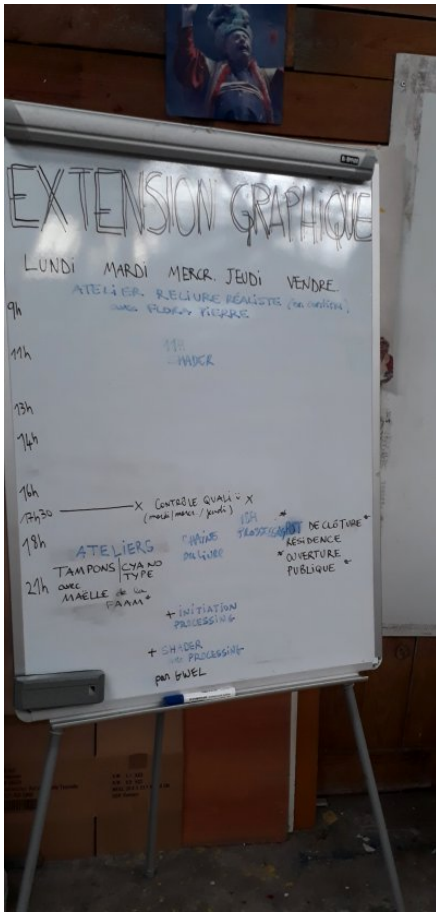 EXTENSION GRAPHIQUE
LUNDI MARDI MERCR. JEUDI VENDRE.
ATELIER RELIURE RÉALISTE
avec FLORA PIERRE
9h
11h
11H
13h
14h
16h
17h30
X CONTRÔLE QUALI X
(mardi/mercr./jeudi)
18h
ATELIERS
TAMPONS/CYANO
TYPE
avec
MAËLLE de la
FAAM*
21h
CHAÎNE
DU LIVRE
18H
* DE CLÔTURE *
RÉSIDENCE
* OUVERTURE
PUBLIQUE *
+ INITIATION
PROCESSING
+ SHADER
PROCESSING
par GWEL